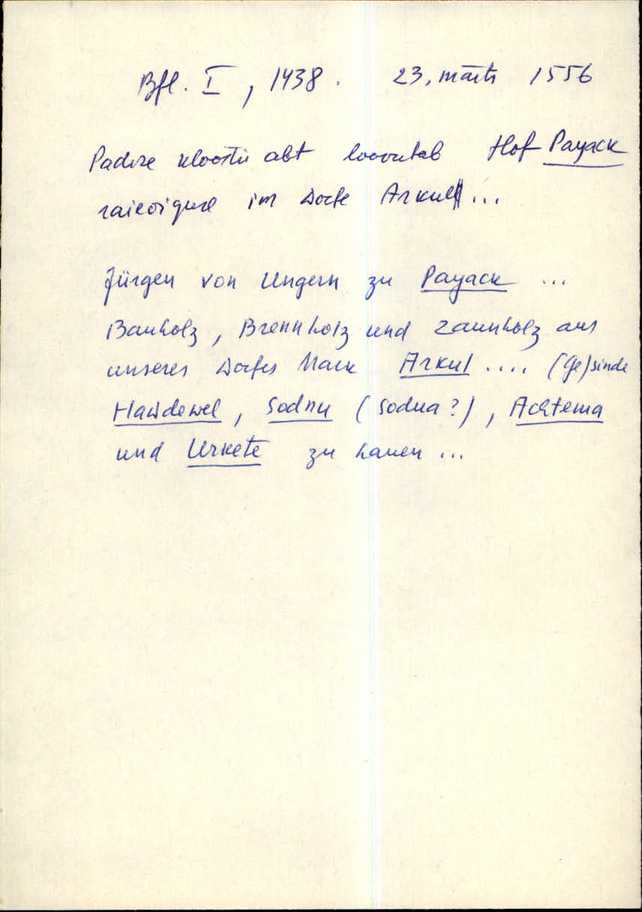 Bfl. I, 1438. 23. märts 1556
Padise kloostri abt loovutab Hof Payack
raieõigusel im Dorfe Arkul ...
Jürgen von Ungern zu Payack ...
Bauholz, Brennholz und Zaunholz aus
unseres Dorfes Mark Arkul .... (Ge)sinde
Hawdewel, Sodnu (Sodna?), Achtema
und Urkete zu hauen ...